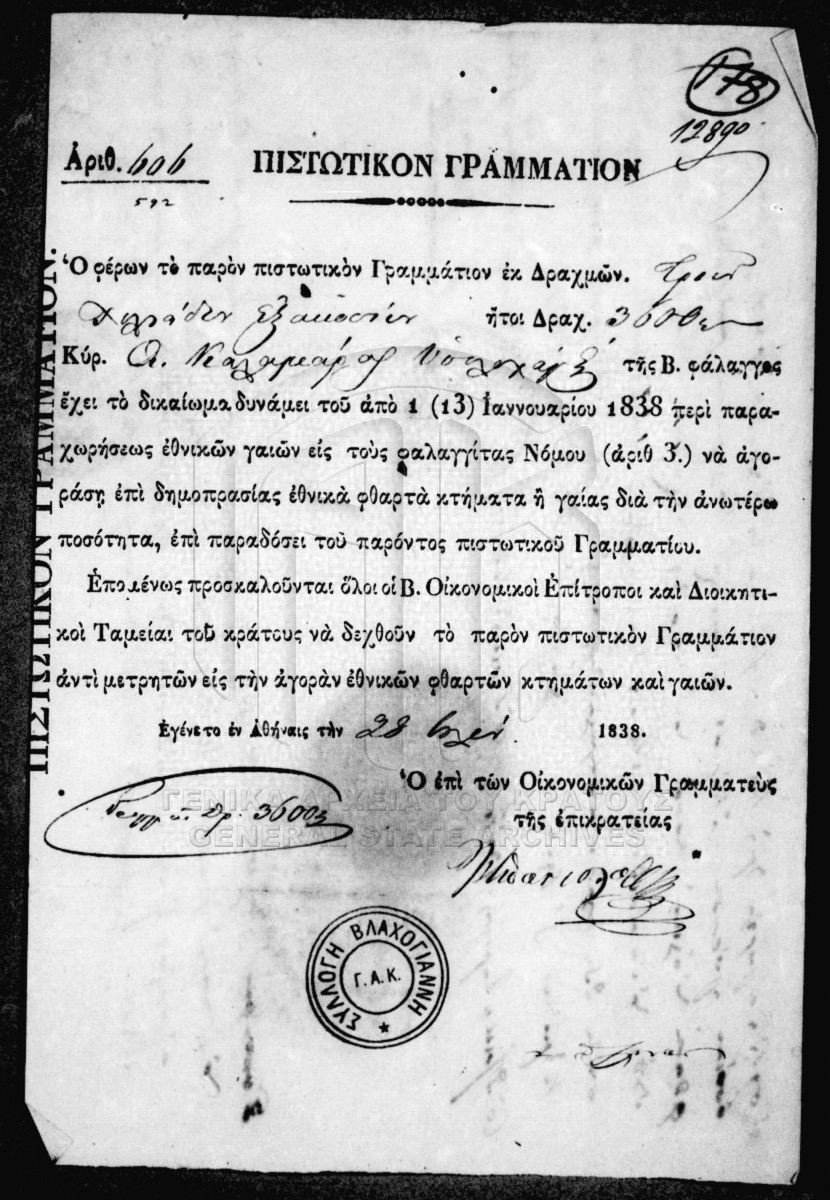 178
12890
Ἀριθ. 606
ΠΙΣΤΩΤΙΚΟΝ ΓΡΑΜΜΑΤΙΟΝ
592
Ὁ φέρων τὸ παρὸν πιστωτικὸν Γραμμάτιον ἐκ Δραχμῶν. τριῶν
χιλιάδων ἑξακοσίων ἤτοι Δραχ. 3600
Κύρ. τῆς Β. φάλαγγος
ἔχει τὸ δικαίωμα δυνάμει τοῦ ἀπὸ 1 (13) Ἰαννουαρίου 1838 περὶ παρα-
χωρήσεως ἐθνικῶν γαιῶν εἰς τοὺς φαλαγγίτας Νόμου (ἀριθ 3.) νὰ ἀγο-
ράσῃ ἐπὶ δημοπρασίας ἐθνικὰ φθαρτὰ κτήματα ἢ γαίας διὰ τὴν ἀνωτέρω
ποσότητα, ἐπὶ παραδόσει τοῦ παρόντος πιστωτικοῦ Γραμματίου.
Ἑπομένως προσκαλοῦνται ὅλοι οἱ Β. Οἰκονομικοὶ Ἐπίτροποι καὶ Διοικητι-
κοὶ Ταμεῖαι τοῦ κράτους νὰ δεχθοῦν τὸ παρὸν πιστωτικὸν Γραμμάτιον
ἀντὶ μετρητῶν εἰς τὴν ἀγορὰν ἐθνικῶν φθαρτῶν κτημάτων καὶ γαιῶν.
Ἐγένετο ἐν Ἀθήναις τὴν 28 1838.
Ὁ ἐπὶ τῶν Οἰκονομικῶν Γραμματεὺς
τῆς ἐπικρατείας
Δρ. 3600
ΓΕΝΙΚΑ ΑΡΧΕΙΑ ΤΟΥ ΚΡΑΤΟΥΣ
GENERAL STATE ARCHIVES
ΣΥΛΛΟΓΗ ΒΛΑΧΟΓΙΑΝΝΗ
Γ.Α.Κ.
ΠΙΣΤΩΤΙΚΟΝ ΓΡΑΜΜΑΤΙΟΝ.